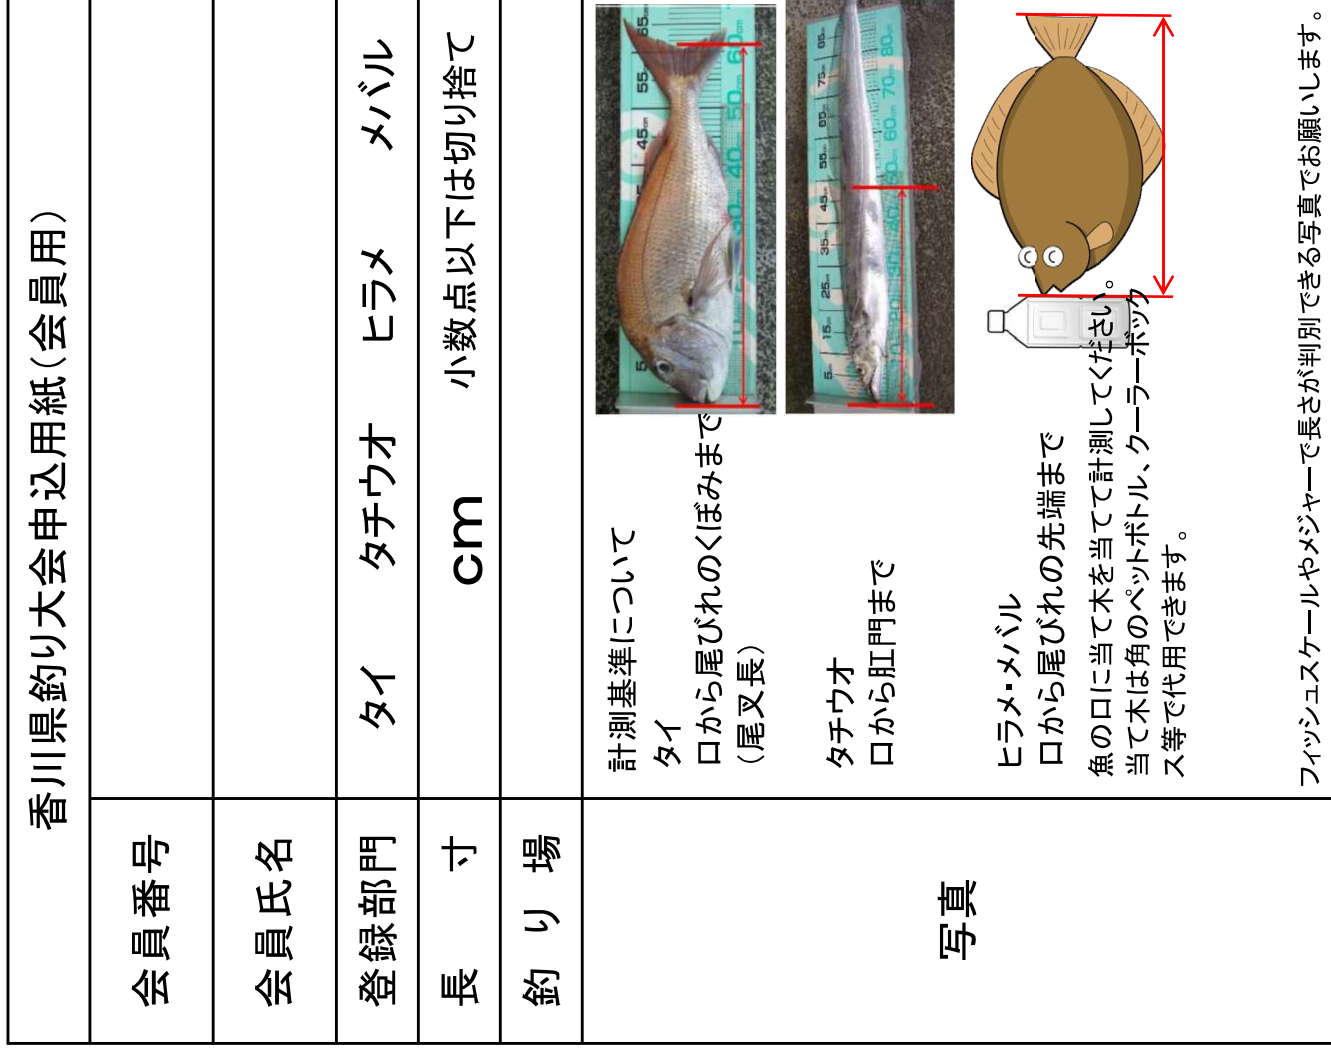 香川県釣り大会申込用紙（会員用）
会員番号
会員氏名
登録部門
タイ タチウオ ヒラメ メバル
長 寸
cm 小数点以下は切り捨て
釣 り 場
写真
計測基準について
タイ
口から尾びれのくぼみまで
（尾叉長）
タチウオ
口から肛門まで
ヒラメ・メバル
口から尾びれの先端まで
魚の口に当て木を当てて計測してください。
当て木は角のペットボトル、クーラーボック
ス等で代用できます。
フィッシュスケールやメジャーで長さが判別できる写真でお願いします。